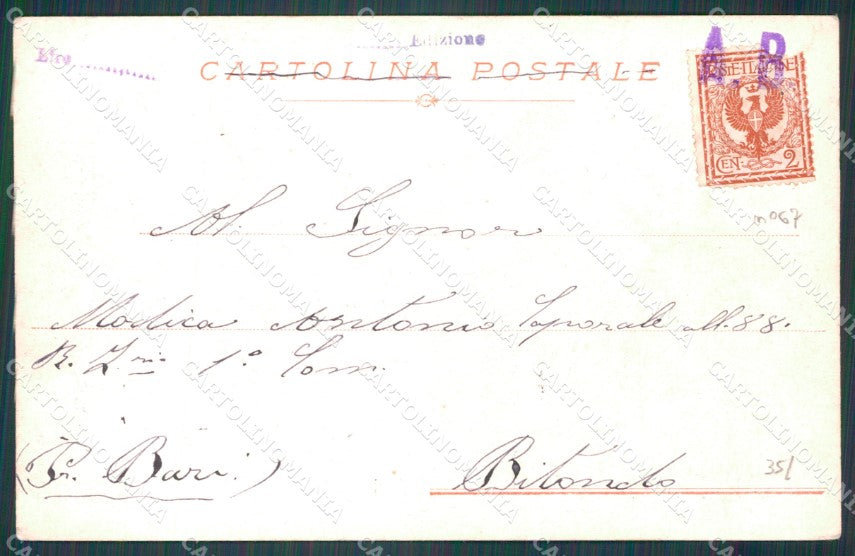 Edizione
CARTOLINA POSTALE
A. B.
POSTE ITALIANE
CEN. 2
n°067
Al Signor
Modica Antonio Caporale all. 88.
R. F.ria 1° Com.
(Pr. Bari.)
Bitondo
35/
CARTOLINOMANIA